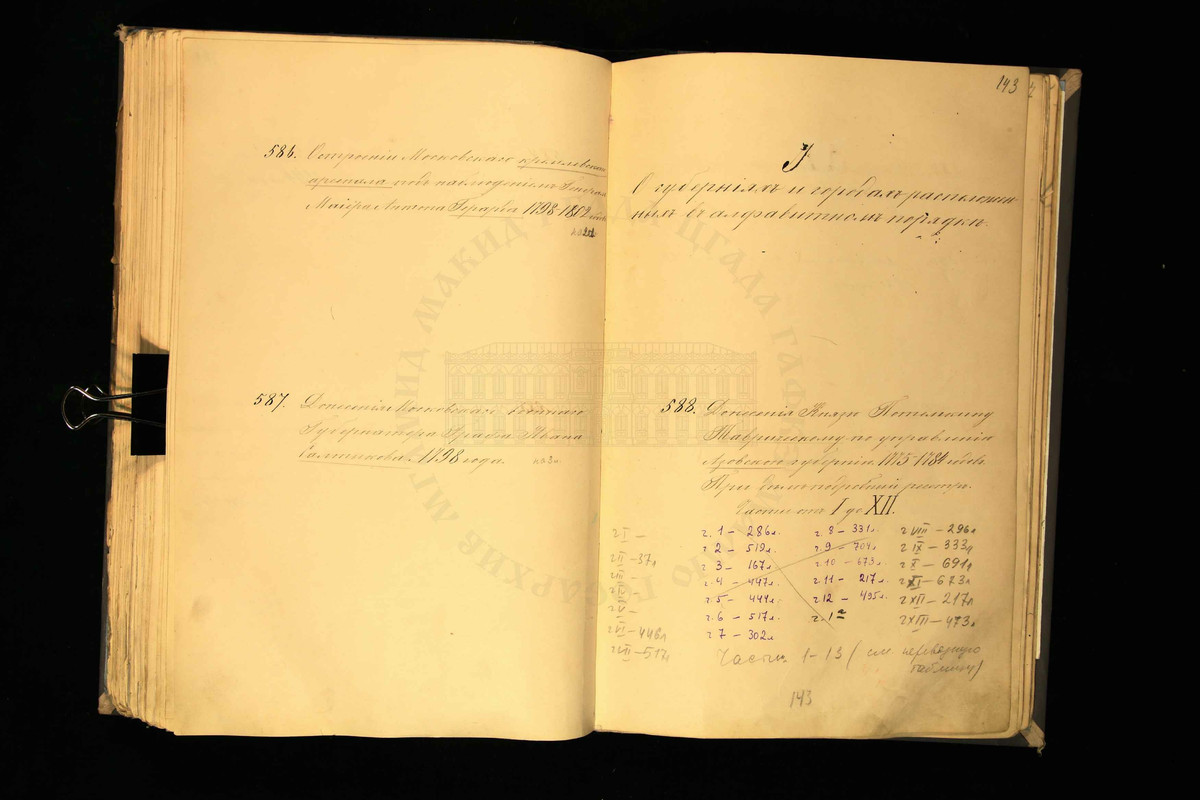 586. О строеніи Московскаго кремлевскаго
арсенала подъ наблюденіемъ Генералъ
Маіора Антона Герарда 1798-1802 годъ
587. Донесенія Московскаго военнаго
Губернатора Графа Ивана
Салтыкова. 1798 года.
на 3 л.
143
У
О губерніяхъ и городахъ расположен
ныхъ въ алфавитномъ порядкѣ.
588. Донесенія Князю Потемкину
Таврическому по управленію
Азовскою губерніи 1775-1784 годовъ
При
реестръ.
Части отъ I до XII.
ч I –
ч II – 37 л
ч III –
ч V –
ч VI – 446 л
ч VII – 517 л
ч. 1 – 286 л.
ч 2 – 519 л.
ч. 3 – 167 л.
ч. 4 – 447 л.
ч. 5 – 444 л.
ч. 6 – 517 л.
ч 7 – 302 л
ч. 8 – 331 л.
ч. 9 – 704 л.
ч. 10 – 673 л.
ч. 11 – 217 л.
ч. 12 – 495 л.
ч. 1
ч VIII – 296 л
ч IX – 333 л
ч X – 691 л
ч XI – 673 л
ч XII – 217 л
ч XIII – 473 л
Части 1–13 ( см переводную
таблицу)
143